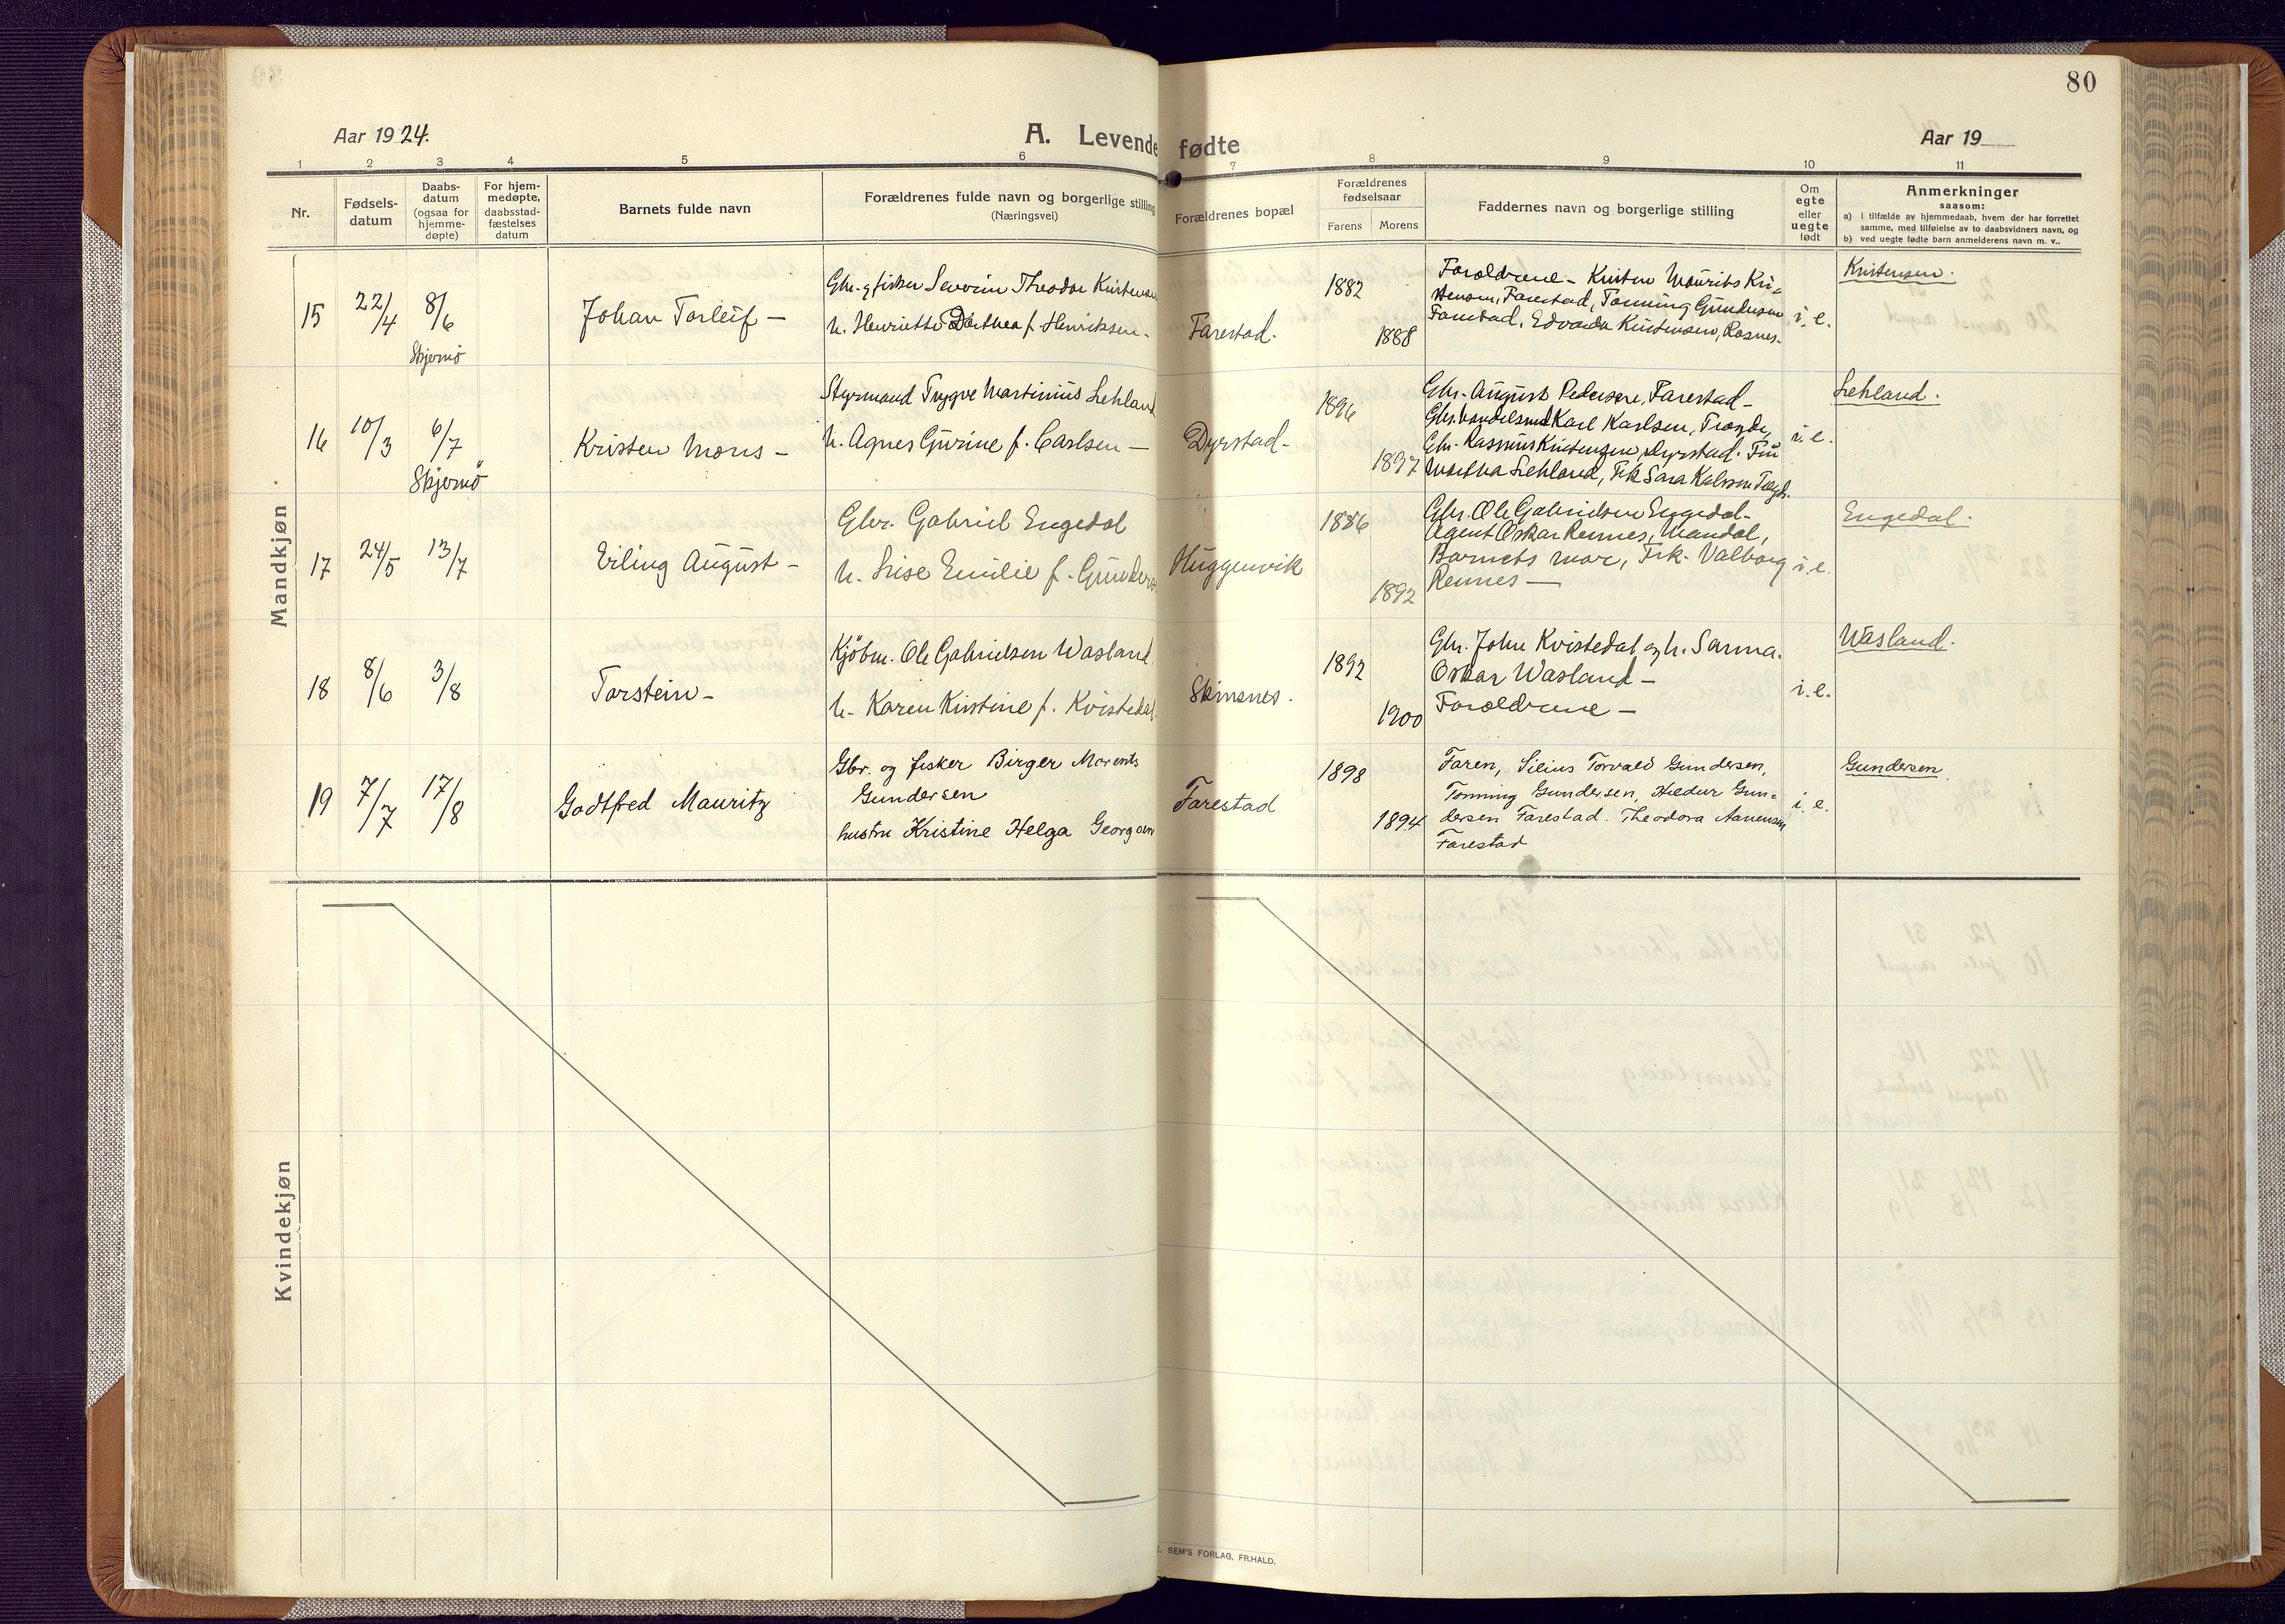 80
Aar 1924.
A. Levende fødte
Aar 19
1 2 3 4 5 6 7 8 9 10 11
Nr.
Fødsels-
datum
Daabs-
datum
(ogsaa for
hjemme-
døpte)
For hjem-
medøpte,
daabsstad-
fæstelses
datum
Barnets fulde navn
Forældrenes fulde navn og borgerlige stilling
(Næringsvei)
Forældrenes bopæl
Forældrenes
fødselsaar
Farens Morens
Faddernes navn og borgerlige stilling
Om
egte
eller
uegte
født
Anmerkninger
saasom:
a) i tilfælde av hjemmedaab, hvem der har forrettet
samme, med tilføielse av to daabsvidners navn, og
b) ved uegte fødte barn anmelderens navn m. v..
Mandkjøn
15
22/4
8/6
Skjernö
Johan Torleif –
Gbr. og fisker Severin Theodor Kristensen
h. Henriette Dorthea f. Henriksen –
Farestad.
1882
1888
Forældrene – Kristen Maurits Kri-
stensen, Farestad, Tomming Gundersen
Farestad, Edvarda Kristensen, Rosnes.
i. e.
Kristensen.
16
10/3
6/7
Skjernö
Kristen Mons –
Styrmand Trygve Martinius Lehland
h. Agnes Gurine f. Carlsen –
Dyrstad –
1896
1897
Gbr. August Pedersen, Farestad –
Gbr. handelsmd Karl Karlsen, Tregde,
Gbr. Rasmus Kristensen, Dyrstad. Fru
Martha Lehland, Frk Sara Karlsen Tregde.
i. e.
Lehland.
17
24/5
13/7
Erling August –
Gbr. Gabriel Engedal
h. Lise Emilie f. Gunders
Huggenvik
1886
1892
Gbr. Ole Gabrielsen Engedal –
Agent Oskar Rennes, Mandal,
Barnets mor, Frk. Valborg
Rennes –
i. e.
Engedal.
18
8/6
3/8
Torstein –
Kjöbm. Ole Gabrielsen Wasland
h. Karen Kirstine f. Kvistedal.
Skinsnes.
1892
1900
Gbr. John Kvistedal og h. Sanna.
Oskar Wasland –
Forældrene –
i. e.
Wasland.
19
7/7
17/8
Godtfred Mauritz
Gbr. og fisker Birger Morents
Gundersen
hustru Kristine Helga Georg
Farestad
1898
1894
Faren, Silius Torvald Gundersen,
Tomming Gundersen, Hildur Gun-
dersen Farestad. Theodora Aanensen
Farestad
i. e.
Gundersen.
Kvindekjøn
SEM'S FORLAG, FR.HALD.